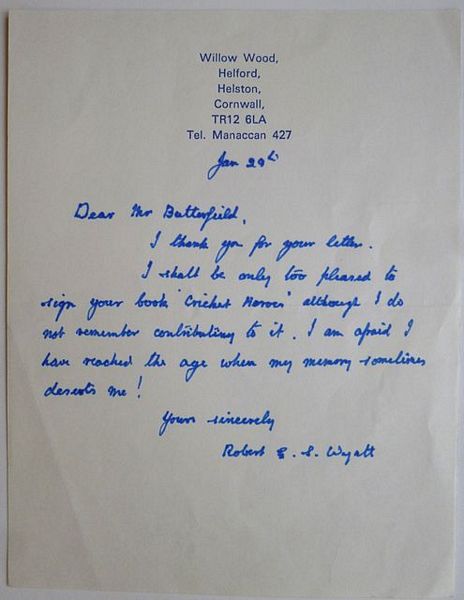 Willow Wood,
Helford,
Helston,
Cornwall,
TR12 6LA
Tel. Manaccan 427
Jan 29th
Dear Mr Butterfield,
I thank you for your letter.
I shall be only too pleased to
sign your book 'Cricket Heroes' although I do
not remember contributing to it. I am afraid I
have reached the age when my memory sometimes
deserts me!
Yours sincerely
Robert E. S. Wyatt